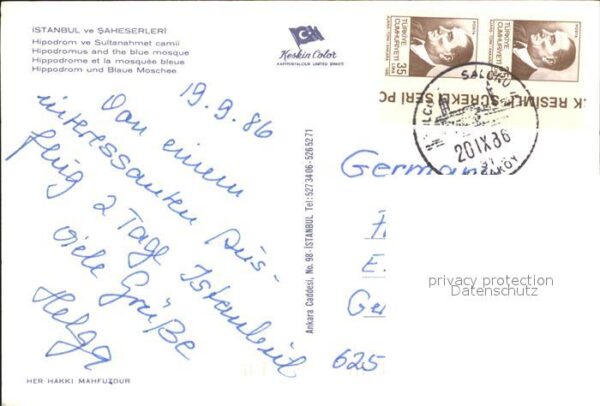 İSTANBUL ve ŞAHESERLERİ
Hipodrom ve Sultanahmet camii
Hipodromus and the blue mosque
Hippodrome et la mosquée bleue
Hippodrom und Blaue Moschee
Keskin Color
KARTPOSTALCILIK LİMİTED ŞİRKETİ
TÜRKİYE CUMHURİYETİ
35 LİRA
POSTA
TÜRKİYE CUMHURİYETİ
35
.K RESİMLİ SÜREKLİ SERİ PO
20 IX 86
19.9.86
Von einem
interessanten Aus-
flug 2 Tage Istanbul
viele Grüße
Helga
Ankara Caddesi, No. 98-İSTANBUL Tel: 5273406-5265271
Germany
625
privacy protection
Datenschutz
HER HAKKI MAHFUZDUR